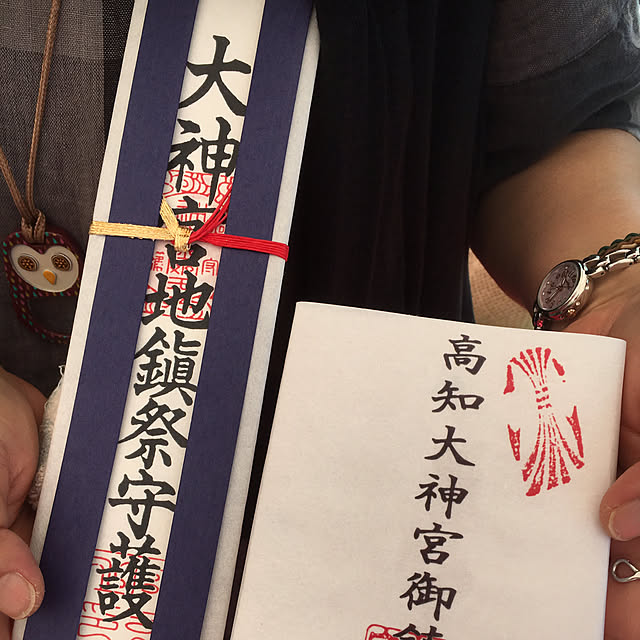 大神宮地鎮祭守護
高知大神宮御